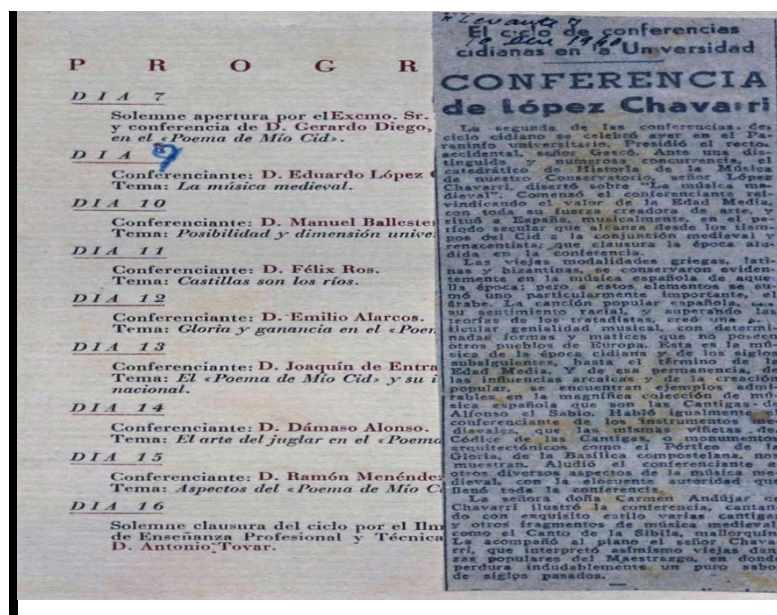 P R O G R
DIA 7
Solemne apertura por el Excmo. Sr.
y conferencia de D. Gerardo Diego,
en el «Poema de Mío Cid».
DIA 9
Conferenciante: D. Eduardo López
Tema: La música medieval.
DIA 10
Conferenciante: D. Manuel Ballester
Tema: Posibilidad y dimensión unive
DIA 11
Conferenciante: D. Félix Ros.
Tema: Castillas son los ríos.
DIA 12
Conferenciante: D. Emilio Alarcos.
Tema: Gloria y ganancia en el «Poem
DIA 13
Conferenciante: D. Joaquín de Entra
Tema: El «Poema de Mío Cid» y su i
nacional.
DIA 14
Conferenciante: D. Dámaso Alonso.
Tema: El arte del juglar en el «Poema
DIA 15
Conferenciante: D. Ramón Menéndez
Tema: Aspectos del «Poema de Mío C
DIA 16
Solemne clausura del ciclo por el Ilm
de Enseñanza Profesional y Técnica
D. Antonio Tovar.
"Levante"
10 Ene 1940
El ciclo de conferencias
cidianas en la Universidad
CONFERENCIA
de López Chavarri
La segunda de las conferencias del
ciclo cidiano se celebró ayer en el Pa-
raninfo universitario. Presidió el rector
accidental, señor Gascó. Ante una dis-
tinguida y numerosa concurrencia, el
catedrático de Historia de la Música
de nuestro Conservatorio, señor López
Chavarri, disertó sobre "La música me-
dieval". Comenzó el conferenciante rei-
vindicando el valor de la Edad Media,
con toda su fuerza creadora de arte, y
situó a España, musicalmente, en el pe-
ríodo secular que alcanza desde los tiem-
pos del Cid a la conjunción medieval y
renacentista, que clausura la época alu-
dida en la conferencia.
Las viejas modalidades griegas, lati-
nas y bizantinas, se conservaron eviden-
temente en la música española de aque-
lla época; pero a estos elementos se su-
mó uno particularmente importante, el
árabe. La canción popular española,
su sentimiento racial, y superando las
teorías de los tratadistas, creó una par-
ticular genialidad musical, con determi-
nadas formas y matices que no poseen
otros pueblos de Europa. Esta en la mú-
sica de la época cidiana y de los siglos
subsiguientes, hasta el término de la
Edad Media. Y de esa permanencia, de
las influencias arcaicas y de la creación
popular, se encuentran ejemplos admi-
rables en la magnífica colección de mú-
sica española que son las Cantigas de
Alfonso el Sabio. Habló igualmente el
conferenciante de los instrumentos me-
dievales, que las mismas viñetas del
Códice de las Cantigas, o monumentos
arquitectónicos como el Pórtico de la
Gloria, de la Basílica compostelana, nos
muestran. Aludió el conferenciante a
otros diversos aspectos de la música me-
dieval, con la elocuente autoridad que
llenó toda la conferencia.
La señora doña Carmen Andújar de
Chavarri ilustró la conferencia, cantan-
do con exquisito estilo varias cantigas
y otros fragmentos de música medieval
como el Canto de la Sibila, mallorquín.
La acompañó al piano el señor Chava-
rri, que interpretó asimismo viejas dan-
zas populares del Maestrazgo, en donde
perdura indudablemente un puro sabor
de siglos pasados.